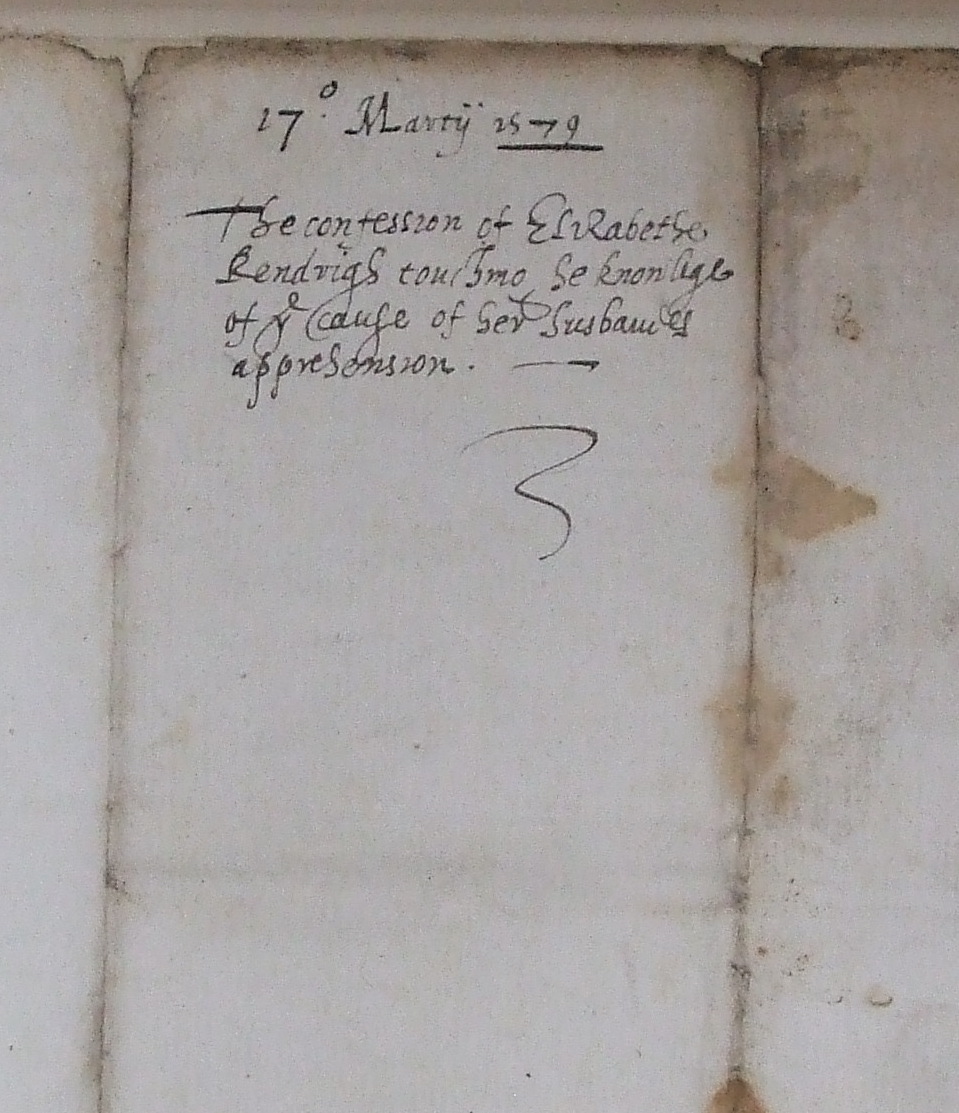 17° Martij 1579
The confession of Elizabethe
Kendrigh touching he knowlige
of yᵉ Cause of her husbandes
apprehension.